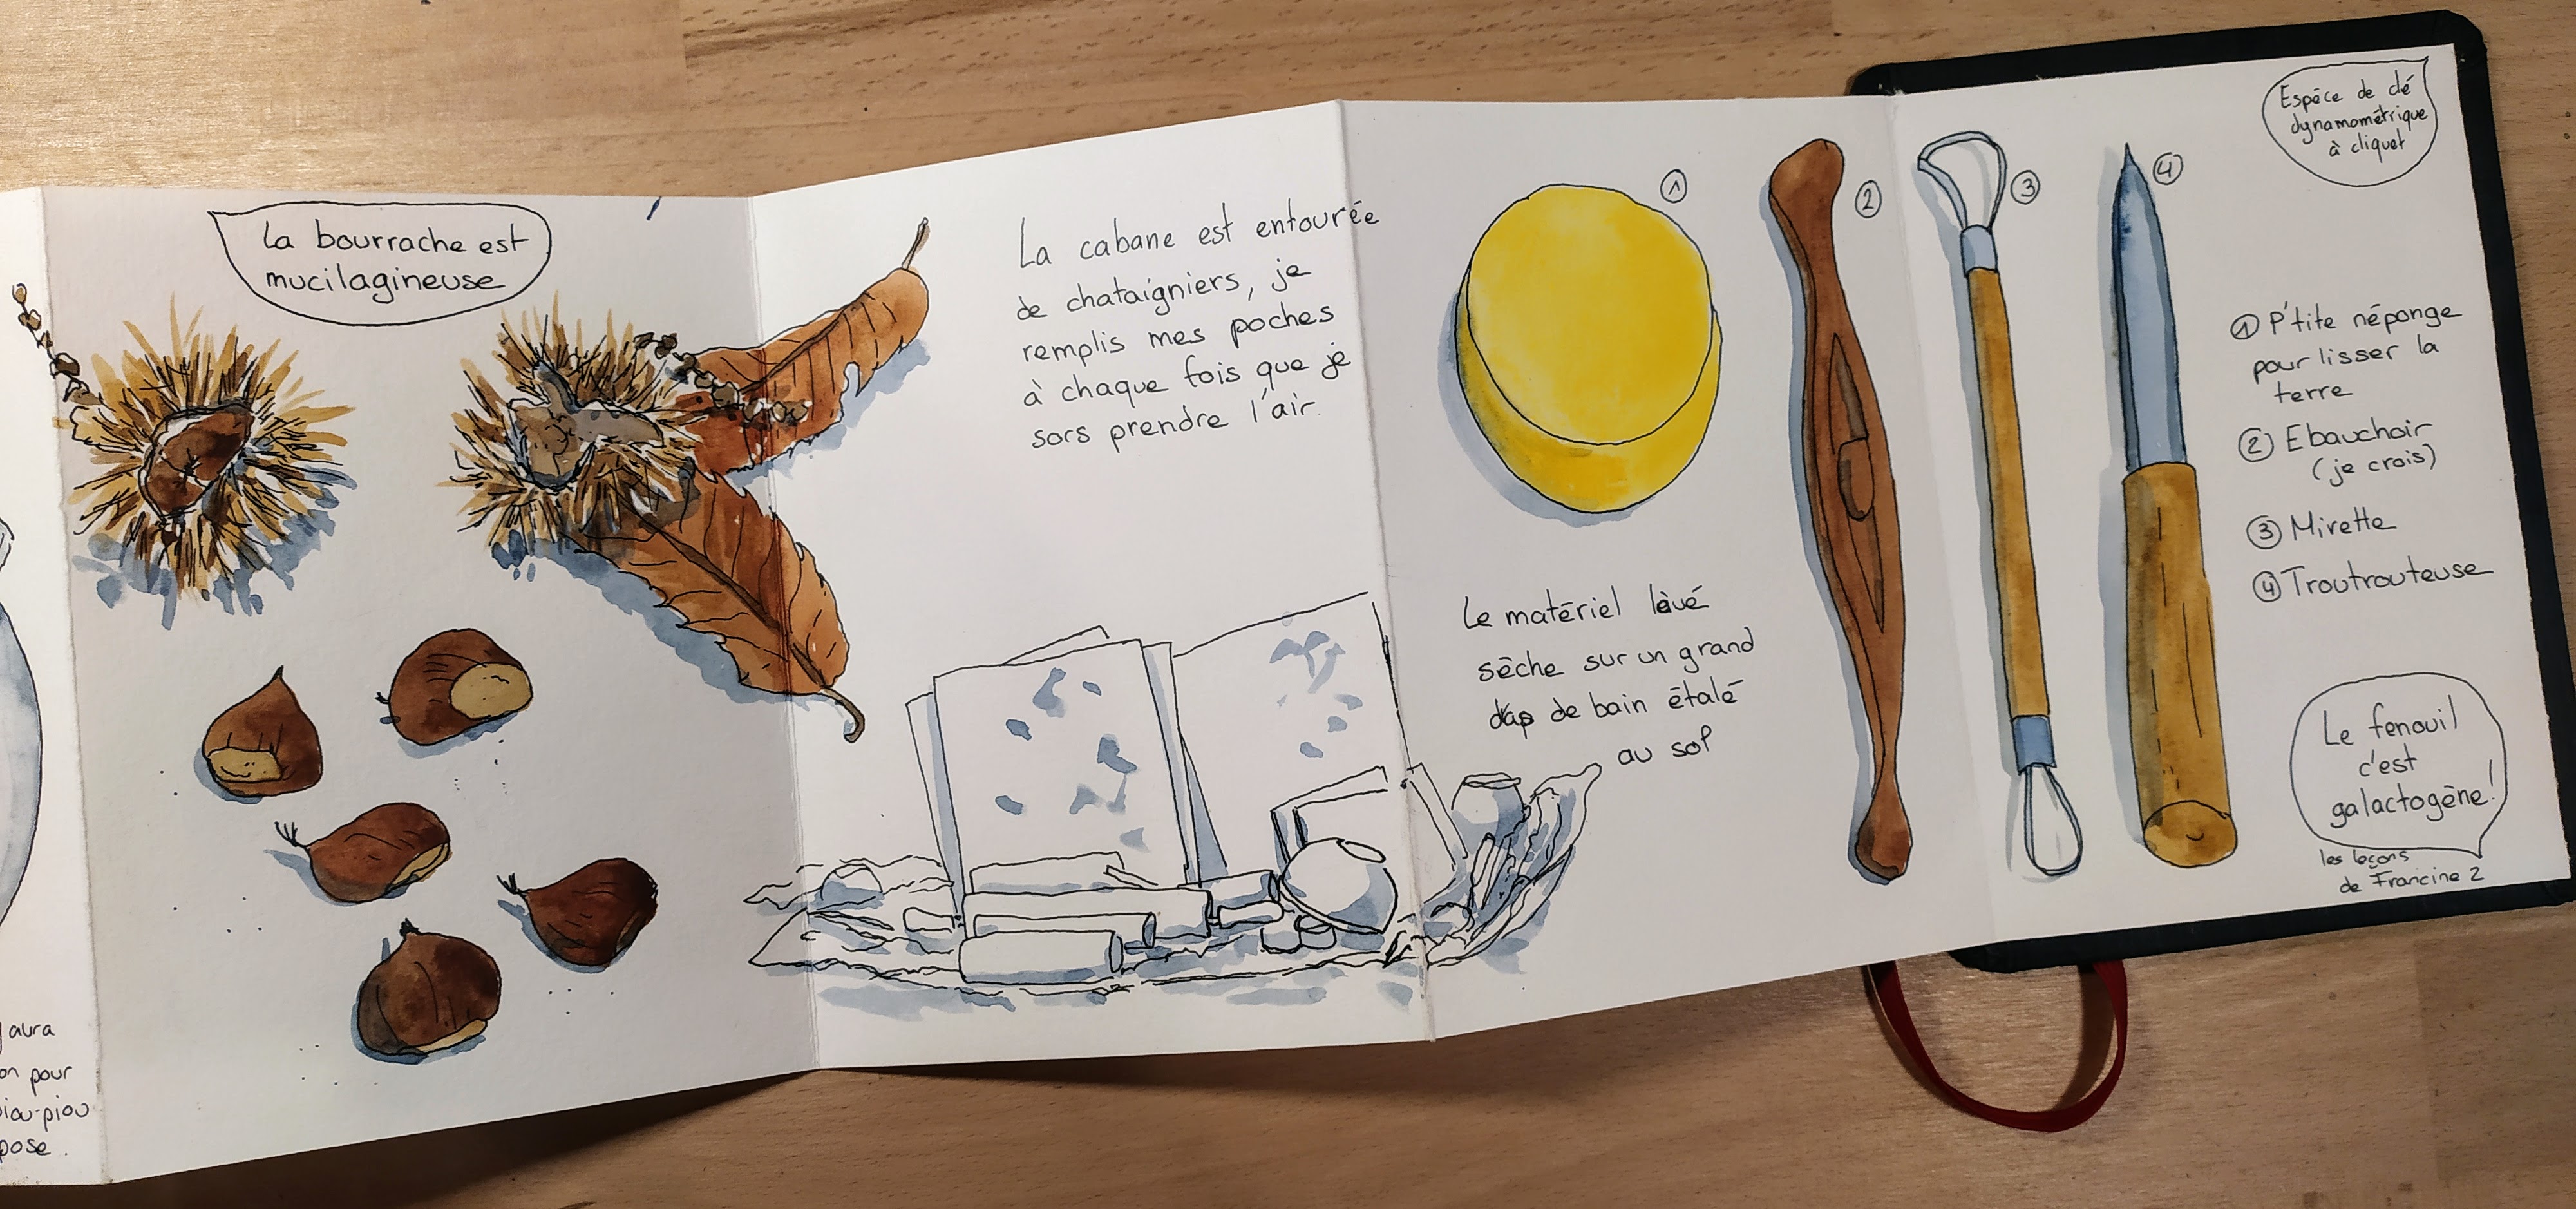 aura
pour
piou-piou
pose.
La bourrache est
mucilagineuse
La cabane est entourée
de chataigniers, je
remplis mes poches
à chaque fois que je
sors prendre l'air.
Le matériel lavé
sèche sur un grand
drap de bain étalé
au sol
1
2
3
4
Espèce de clé
dynamométrique
à cliquet
1 P'tite néponge
pour lisser la
terre
2 Ebauchoir
(je crois)
3 Mirette
4 Troutrouteuse
Le fenouil
c'est
galactogène!
les leçons
de Francine 2